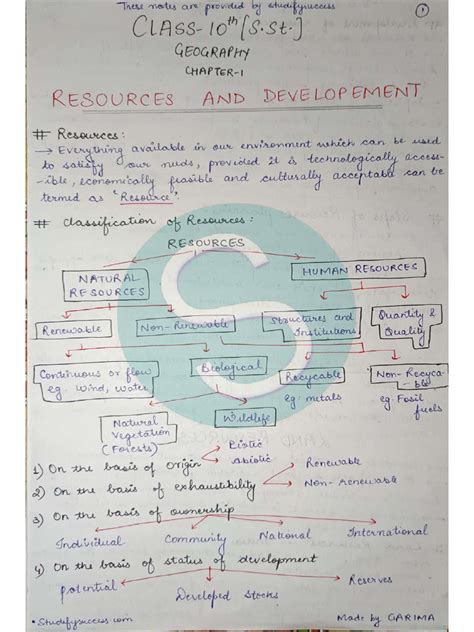 These notes are provided by studifysuccess
1
CLASS-10th [S.St.]
GEOGRAPHY
CHAPTER-1
RESOURCES AND DEVELOPEMENT
# Resources:
→ Everything available in our environment which can be used
to satisfy our needs, provided it is technologically access-
-ible, economically feasible and culturally acceptable can be
termed as "Resource".
# Classification of Resources:
RESOURCES
NATURAL RESOURCES
HUMAN RESOURCES
Renewable
Non-Renewable
Structures and Institutions
Quantity & Quality
Continuous or flow
eg. Wind, water
Biological
Recycable
eg. metals
Non-Recyca-
ble
eg. Fossil
fuels
Natural
Vegetation
(Forests)
Wildlife
1) On the basis of origin
Biotic
Abiotic
2) On the basis of exhaustibility
Renewable
Non-renewable
3) On the basis of ownership
Individual Community National International
4) On the basis of status of development
Potential Developed Stocks Reserves
•Studifysuccess.com
Made by GARIMA